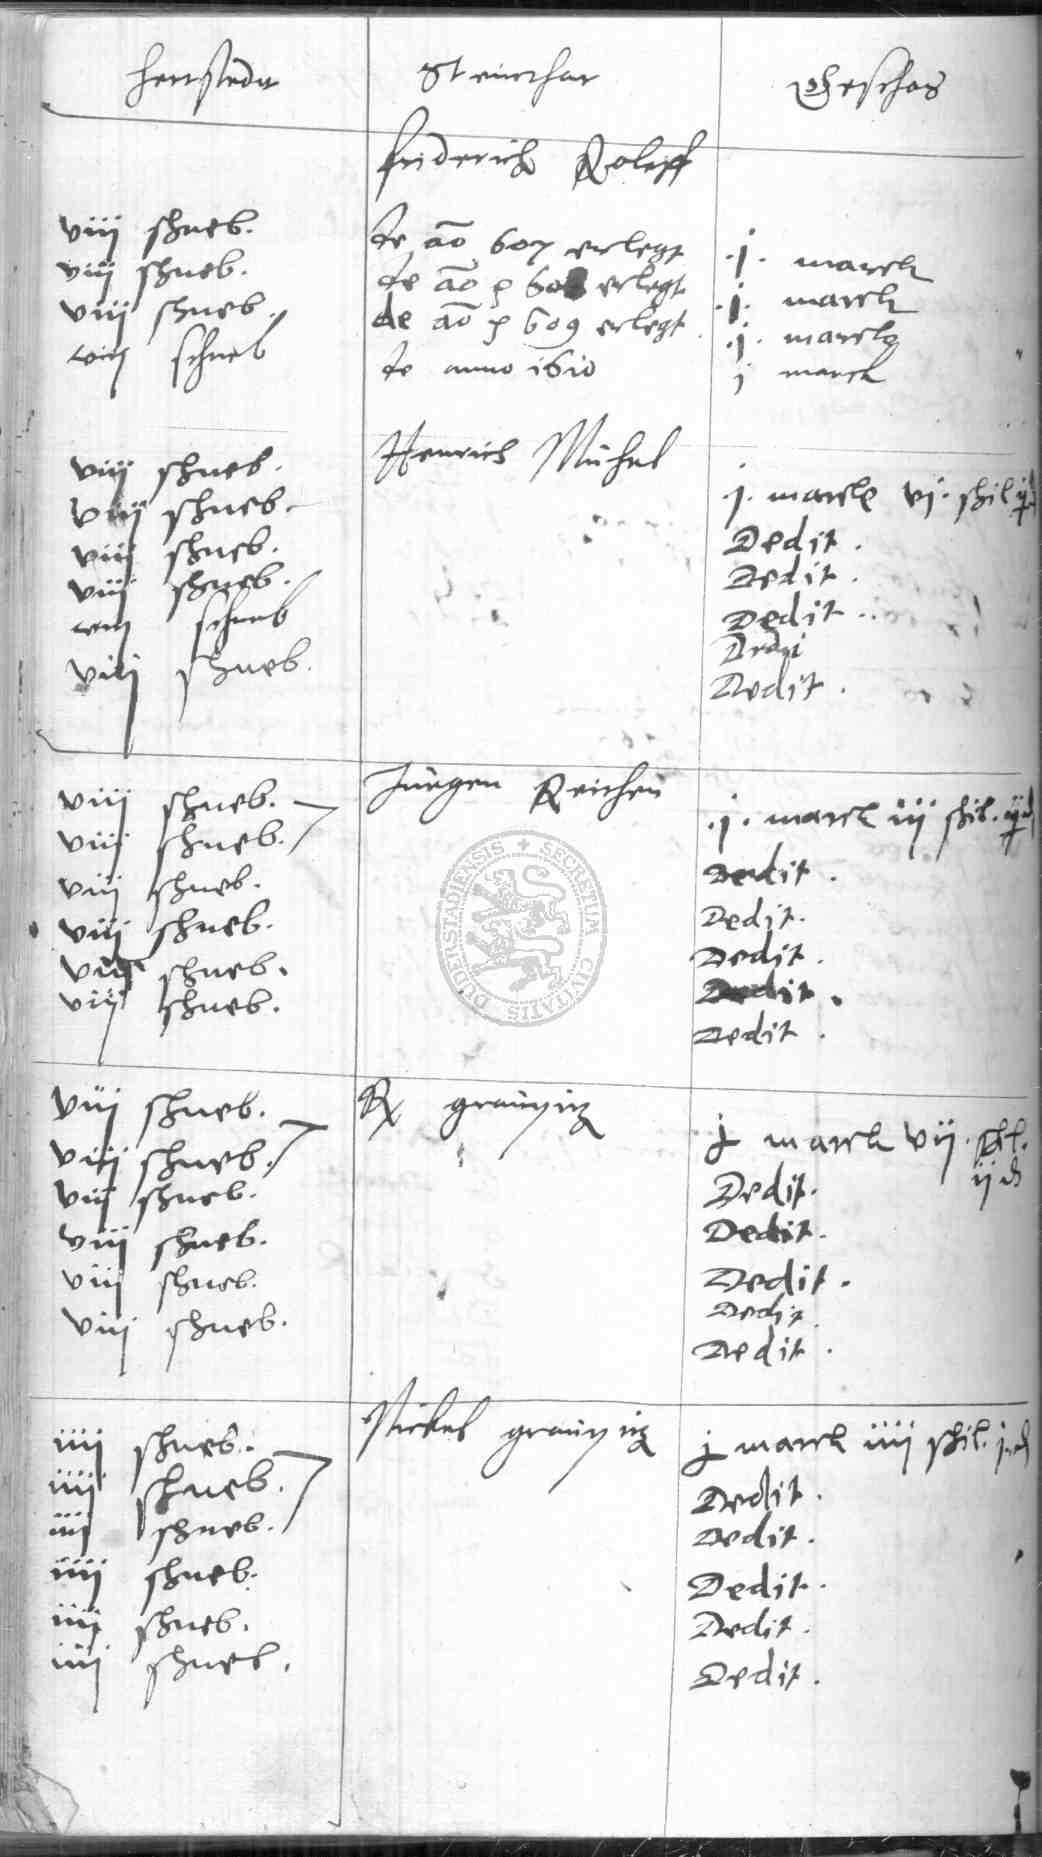 herttstedt Steinthor Geschos
Friderich Roleff
viij schneb. de ao 607 erlegt .j. marck
viij schneb. de ao p 608 erlegt .j. marck
viij schneb. de ao p 609 erlegt .j. marck
viij schneb de anno 1610 j marck
Henrich Mühel
viij schneb. j. marck vj. schil
viij schneb. Dedit.
viij schneb. Dedit.
viij schneb. Dedit.
viij schneb Dedit
viij schneb. Dedit.
Jurgen
viij schneb. .j. marck iij schil.
viij schneb. Dedit.
viij schneb. Dedit.
viij schneb. Dedit.
viij schneb. Dedit.
viij schneb. Dedit.
SECRETUM CIVITATIS DUDERSTADIENSIS
viij schneb. j marck vij. schl.
ij d
viij schneb. Dedit.
viij schneb. Dedit.
viij schneb. Dedit.
viij schneb. Dedit.
viij schneb. Dedit.
Nickel
iiij schneb. j marck iiij schil. j d
iiij schneb. Dedit.
iiij schneb. Dedit.
iiij schneb. Dedit.
iiij schneb. Dedit.
iiij schneb. Dedit.